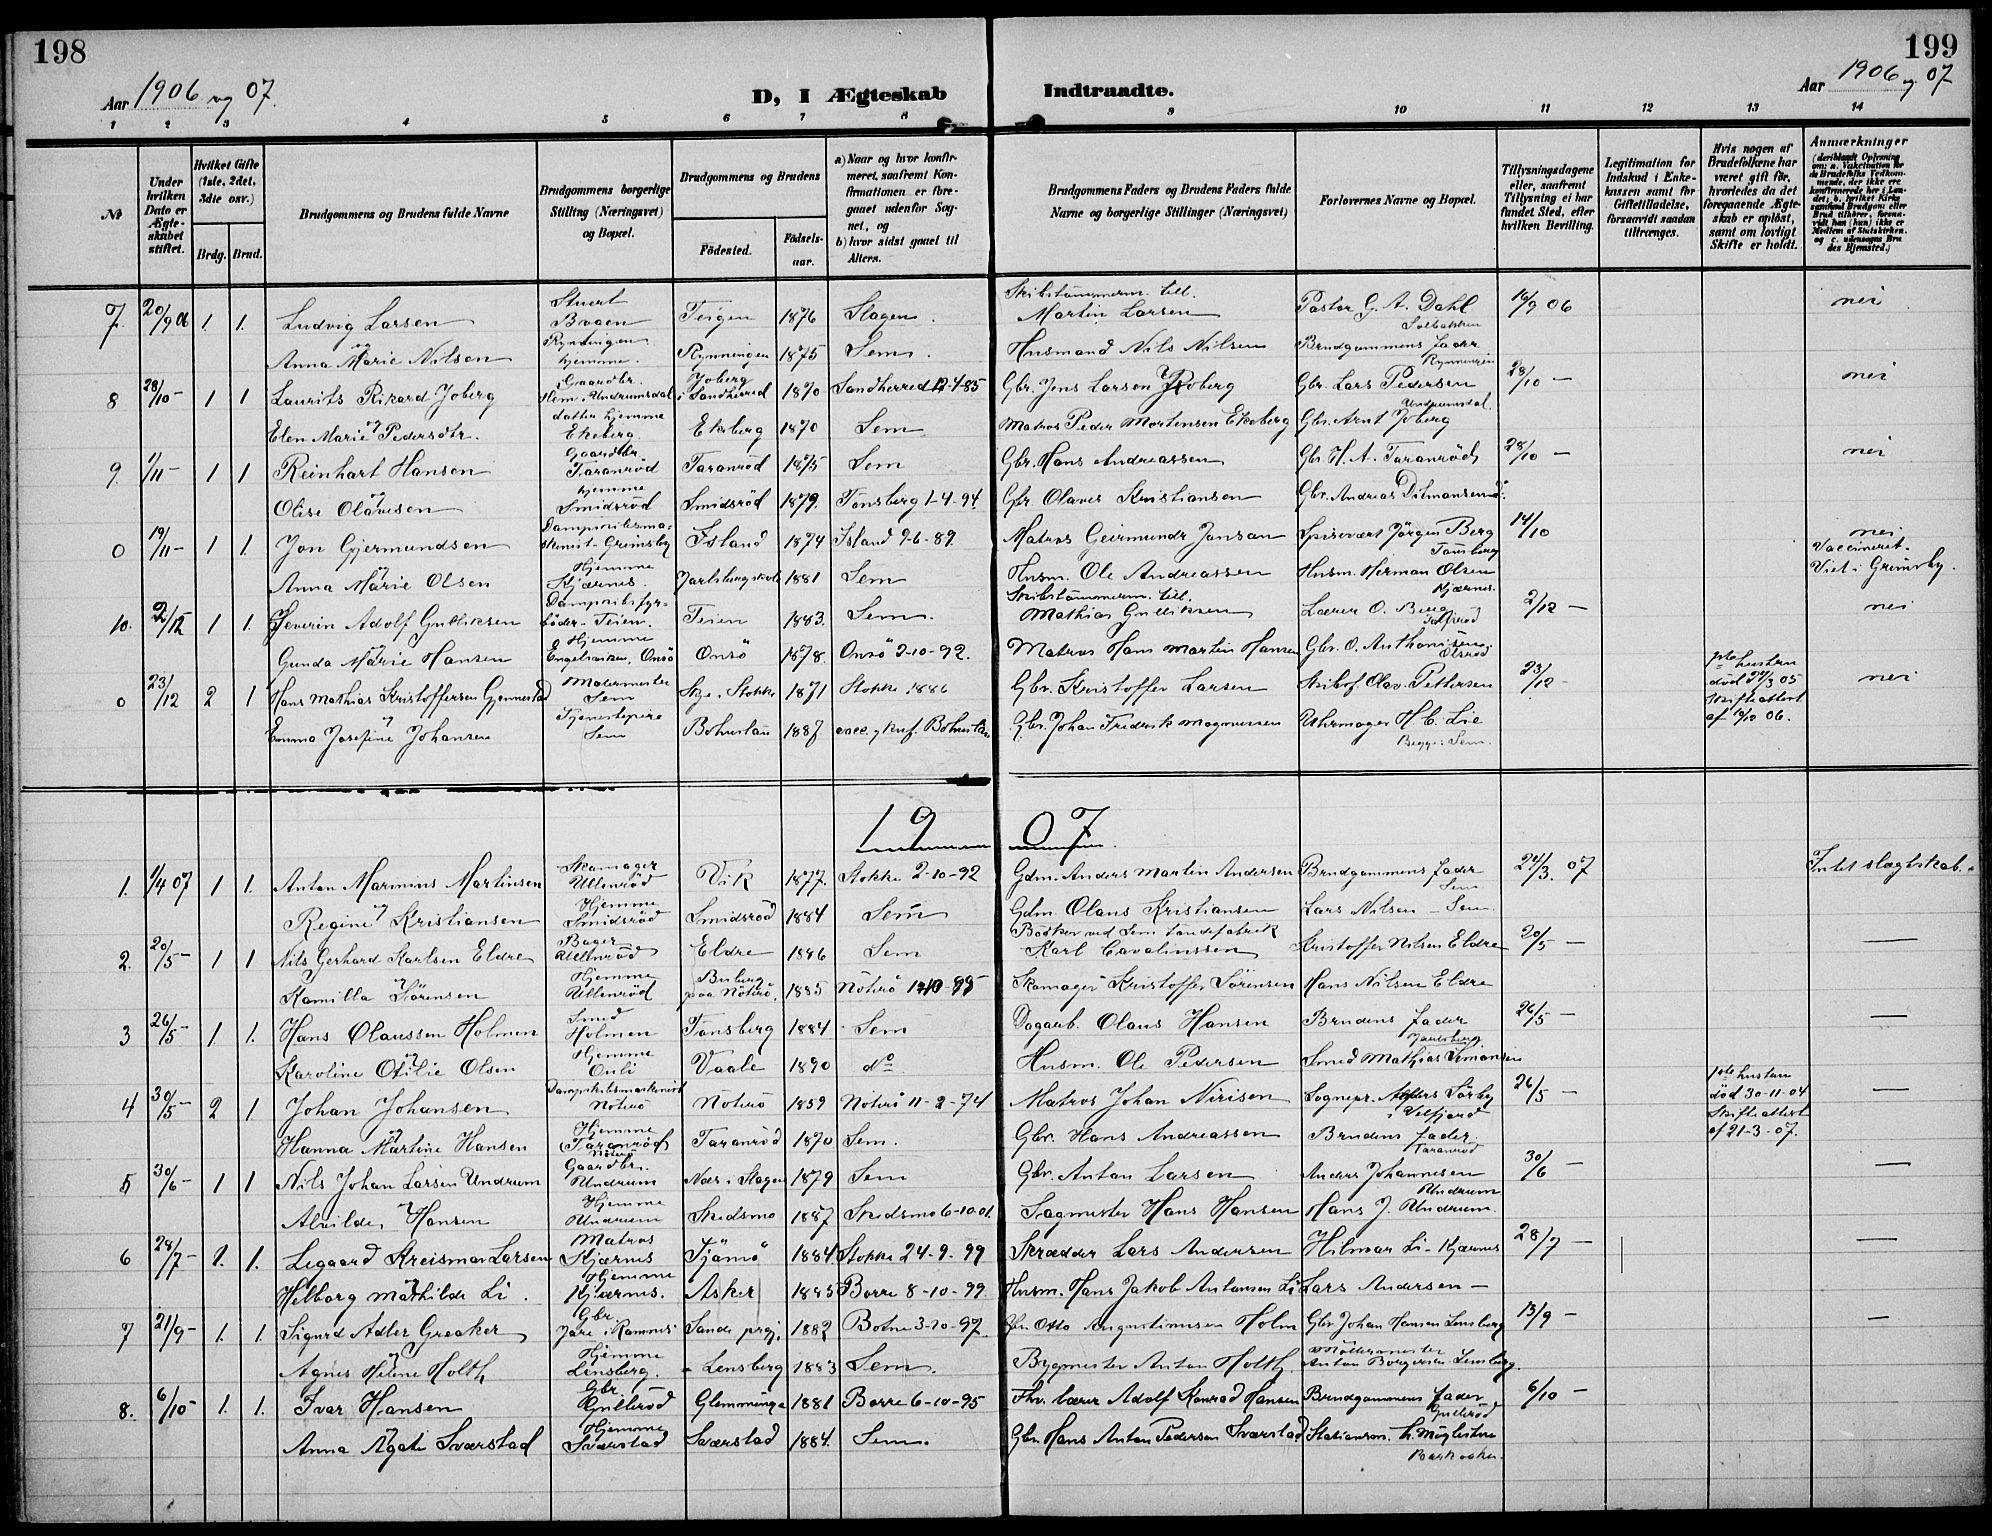 198
199
Aar 1906 og 07.
D, I Ægteskab Indtraadte.
Aar 1906 og 07
1 2 3 4 5 6 7 8 9 10 11 12 13 14
№
Under hvilken Dato er Ægteskabet stiftet.
Hvilket Gifte (1ste, 2det, 3die osv.)
Brdg. Brud.
Brudgommens og Brudens fulde Navne
Brudgommens borgerlige Stilling (Næringsvei) og Bopæl.
Brudgommens og Brudens
Fødested. Fødselsaar.
a) Naar og hvor konfirmeret, saafremt Konfirmationen er foregaaet udenfor Sognet, og
b) hvor sidst gaaet til Alters.
Brudgommens Faders og Brudens Faders fulde Navne og borgerlige Stillinger (Næringsvei)
Forlovernes Navne og Bopæl.
Tillysningsdagene eller, saafremt Tillysning ei har fundet Sted, efter hvilken Bevilling.
Legitimation for Indskud i Enkekassen samt for Giftetilladelse, forsaavidt saadan tiltrænges.
Hvis nogen af Brudefolkene har været gift før, hvorledes da det foregaaende Ægteskab er opløst, samt om lovligt Skifte er holdt.
Anmærkninger
7. 20/9 06 1. 1. Ludvig Larsen Stuert Teigen 1876 Slagen. Skibstømmerm. Martin Larsen Pastor G. A. Dahl 16/9 06 nei
Anna Marie Nilsen hjemme. Rynningen 1875 Sem. Husmand Nils Nilsen Brudgommens fader
8 28/10 - 1 1 Laurits Rikard Joberg Gaardbr. Undrumsdal Joberg i Sandherred 1870 Sandherred 12-4-85 Gbr. Jens Larson Joberg Gbr. Lars Pedersen Undrumsdal. 28/10 - nei
Elen Marie Pedersdtr. datter hjemme Ekeberg Ekeberg 1870 Sem Matros Peder Mortensen Ekeberg Gbr. Arnt Joberg
9. 1/11 - 1 1 Reinhart Hansen Gaardbr Taranrød Taranrød 1875 Sem Gbr. Hans Andreassen Gbr. H. A. Taranrød 28/10 - nei
Olise Olavesen hjemme Smidsrød Smidsrød 1879. Tønsberg 1-4-94. Gbr Olaves Kristiansen Gbr. Andreas Ditmansen
0 19/11 - 1 1. Jon Gjermundsen Grimsby Island 1874 Island 9-6-89 Matros Geirmundr Jonson Spisevært Jørgen Berg Tønsberg 14/10 nei
Vaccineret.
Viet i Grimsby.
Anna Marie Olsen Hjemme Kjærnes. 1881 Sem Husm. Ole Andreassen Husm. Herman Olsen Kjærnes.
10. 2/12 1 1. Severin Adolf Gulliksen Dampskibsfyrbøder - Teien. Teien 1883. Sem. Skibstømmerm. Mathias Gulliksen Lærer O. Berg 2/12 - nei
Gunda Marie Hansen Hjemme Engelsviken, Onsø Onsø 1878. Onsø 2-10-92. Matros Hans Martin Hansen Gbr. O. Anthonisen
0 23/12 2 1 Hans Mathias Kristoffersen Gjennestad Malermester Sem Stokke 1871 Stokke 1886 Gbr. Kristoffer Larsen Skibsf. Olav Pettersen 23/12 - 1ste hustru død 05 Skifteattest af 06. nei
Emma Josefine Johansen Tjenestepige Sem Bohuslän 1887 Bohuslän Gbr. Johan Fredrik Magnussen Uhrmager H. C. Lie Begge i Sem.
1907
1. 1/4 07 1 1. Anton Marinius Martinsen Skomager Ullenrød Vik 1877. Stokke 2-10-92 Gdm. Anders Martin Andersen Brudgommens fader Sem 24/3. 07 Intet slægtskab.
Regine Kristiansen Hjemme Smidsrød Smidsrød 1884 Sem Gdm Olaus Kristiansen Lars Nilsen - Sem.
2. 20/5 - 1 1 Nils Gerhard Karlsen Eldre Bager Ullenrød Eldre 1886 Sem Bødker ved Sem Karl Cavalinssen Kristoffer Nilsen Eldre 20/5 - —
Kamilla Sørensen Hjemme Ullenrød paa Nøterø. 1885 Nøterø 1-10-99 Skomager Kristoffer Sørensen Hans Nilsen Eldre
3 26/5 - 1. 1. Hans Olaussen Holmen Smed Holmen Tønsberg 1884 Sem Dagarb. Olaus Hansen Brudens fader 26/5 - —
Karoline Otilie Olsen Hjemme Vaale 1890 do Husm. Ole Pedersen Smed Mathias Simonsen
4 30/5 - 2 1 Johan Johansen Dampskibsmaskinist Nøterø Nøterø 1859 Nøterø 11-2-74 Matros Johan Nirisen Sognepr. Sørby 26/5 - 1ste hustru død 30-11-04 Skifteattest af 21-3-07. —
Hanna Martine Hansen Hjemme Taranrød Taranrød 1870 Sem. Gbr. Hans Andreassen Brudens fader Taranrød
5 30/6 - 1 1 Nils Johan Larsen Undrum Gaardbr. Undrum Næs i Slagen 1879 Sem Gbr. Anton Larsen Anders Johannesen Undrum 30/6 - —
Alvilde Hansen Hjemme Undrum Skedsmo 1887 Skedsmo 6-10-01. Sagmester Hans Hansen Hans J. Undrum.
6 28/7 - 1. 1. Legaard Kreismar Larsen Matros Kjærnes Tjømø 1884 Stokke 24-9-99 Skrædder Lars Andersen Hilmar Li - Kjærnes 28/7 - —
Helborg Mathilde Li. Hjemme Kjærnes. Asker 1885 Borre 8-10-99 Husm. Hans Jakob Antonsen Li Lars Andersen -
7 21/9 - 1. 1. Sigurd Adler Greaker Gbr. Jare i Ramnes Sande prgj. 1882 Botne 3-10-97. Gbr. Otto Augustinusen Holm Gbr Johan Hansen Lensberg 13/9 - —
Agnes Helene Holth Hjemme Lensberg. Lensberg 1883 Sem. Bygmester Anton Holth Møllermester Anton Borgersen Lensberg.
8. 6/10 - 1. 1. Ivar Hansen Gbr Gullerød Glemminge 1881 Borre 6-10-95 Fhv. lærer Adolf Konrad Hansen Brudgommens fader Gullerød 6/10 -
Anna Agate Sværstad Hjemme Sværstad Sværstad 1884. Sem. Gbr Hans Anton Pedersen Sværstad Stationsm. Barkaaker.